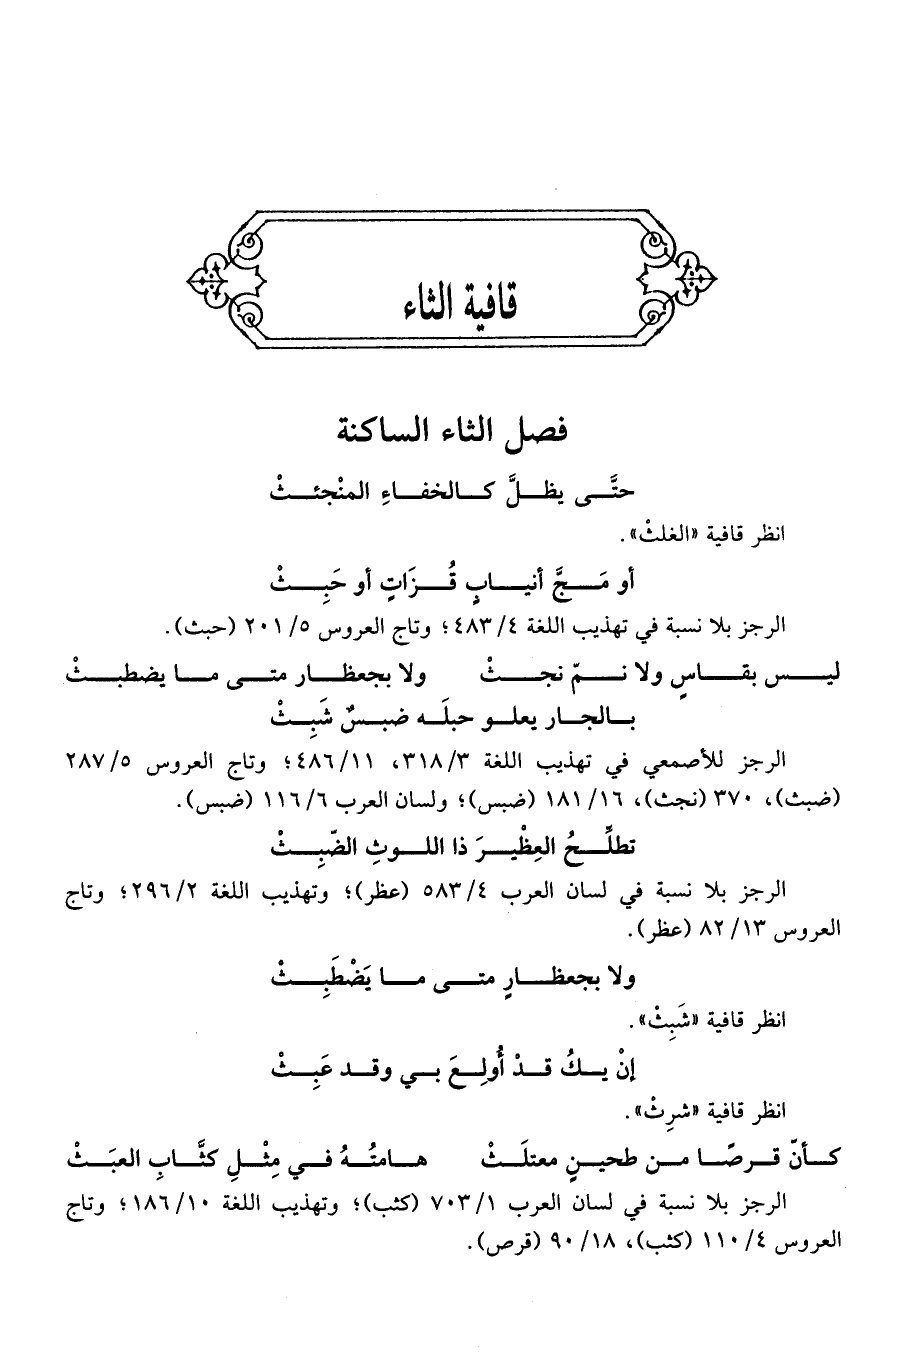 قافية الثاء
فصل الثاء الساكنة
حتَّى يظلَّ كالخفاءِ المنْجئثْ
انظر قافية «الغلثْ».
أو مَجَّ أنيابٍ قُزَاتٍ أو حَبِثْ
الرجز بلا نسبة في تهذيب اللغة ٤/ ٤٨٣؛ وتاج العروس ٥/ ٢٠١ (حبث).
ليس بقاسٍ ولا نمّ نجثْ ولا بجعظار متى ما يضطبثْ
بالجار يعلو حبلَه ضبسٌ شَبِثْ
الرجز للأصمعي في تهذيب اللغة ٣/ ٣١٨، ١١/ ٤٨٦؛ وتاج العروس ٥/ ٢٨٧
(ضبث)، ٣٧٠ (نجث)، ١٦/ ١٨١ (ضبس)؛ ولسان العرب ٦/ ١١٦ (ضبس).
تطلِّحُ العِظْيرَ ذا اللوثِ الضّبِثْ
الرجز بلا نسبة في لسان العرب ٤/ ٥٨٣ (عظر)؛ وتهذيب اللغة ٢/ ٢٩٦؛ وتاج
العروس ١٣/ ٨٢ (عظر).
ولا بجعظارٍ متى ما يَضْطَبِثْ
انظر قافية «شَبِثْ».
إنْ يكُ قدْ أُولِعَ بي وقد عَبِثْ
انظر قافية «شرِثْ».
كأنّ قرصًا من طحينٍ معتلَثْ هامتُهُ في مِثْلِ كثَّابِ العبَثْ
الرجز بلا نسبة في لسان العرب ١/ ٧٠٣ (كثب)؛ وتهذيب اللغة ١٠/ ١٨٦؛ وتاج
العروس ٤/ ١١٠ (كثب)، ١٨/ ٩٠ (قرص).